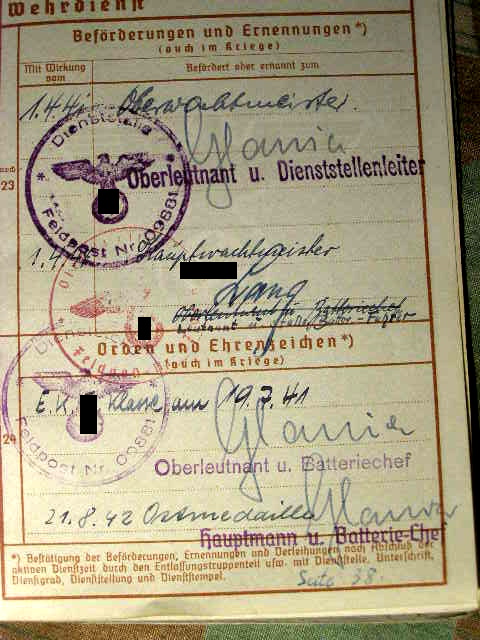 Wehrdienst
Beförderungen und Ernennungen*)
(auch im Kriege)
Mit Wirkung vom
Befördert oder ernannt zum
1.4.41 Oberwachtmeister.
Dienststelle
23
Oberleutnant u. Dienststellenleiter
Feldpost Nr. 00881
Hauptwachtmeister
Lang
Orden und Ehrenzeichen*)
(auch im Kriege)
E.K. Klasse am 19.7.41
24
Feldpost Nr. 00881
Oberleutnant u. Batteriechef
21.8.42 Ostmedaille
Hauptmann u. Batterie-Chef
*) Bestätigung der Beförderungen, Ernennungen und Verleihungen nach Abschluß der
aktiven Dienstzeit durch den Entlassungstruppenteil usw. mit Dienststelle, Unterschrift,
Dienstgrad, Dienststellung und Dienststempel.
38.